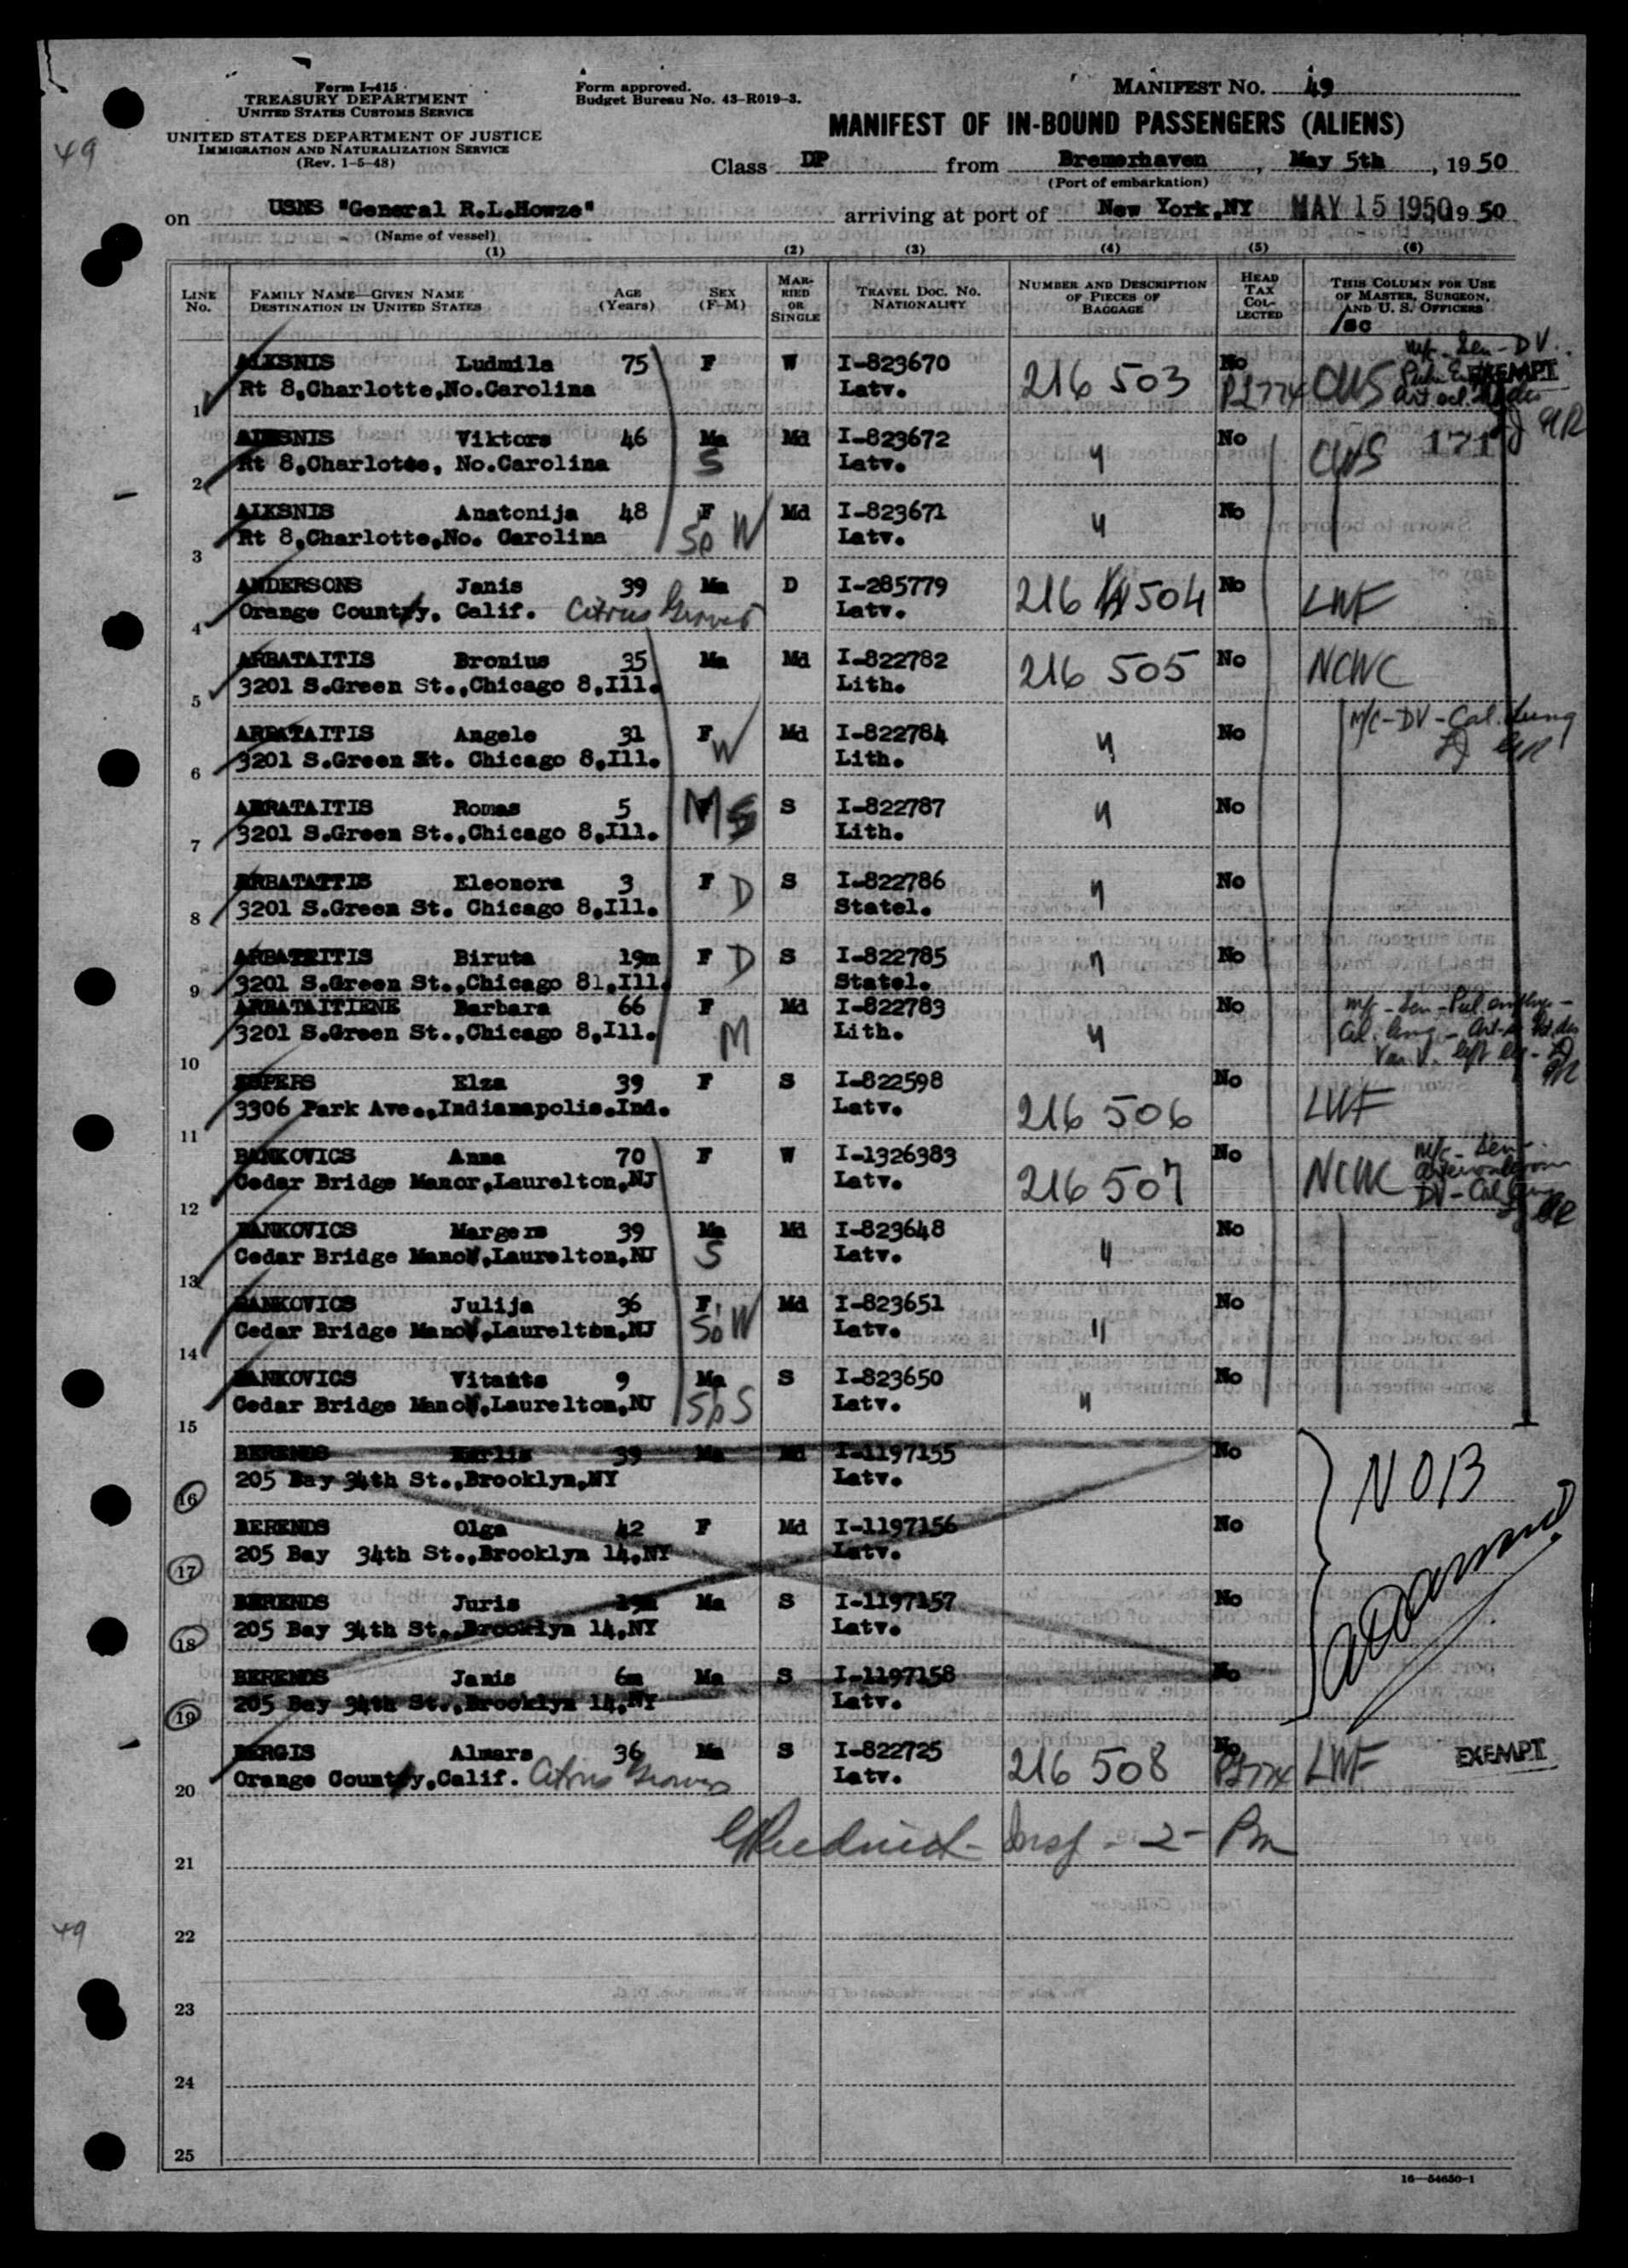 Form I-415
TREASURY DEPARTMENT
UNITED STATES CUSTOMS SERVICE
UNITED STATES DEPARTMENT OF JUSTICE
IMMIGRATION AND NATURALIZATION SERVICE
(Rev. 1-5-48)
Form approved.
Budget Bureau No. 43-R019-3.
MANIFEST NO. 49
49
MANIFEST OF IN-BOUND PASSENGERS (ALIENS)
Class DP from Bremerhaven, May 5th, 19 50
(Port of embarkation)
on USNS "General R.L.Howze" arriving at port of New York,NY MAY 15 1950 19 50
(Name of vessel)
(1) (2) (3) (4) (5) (6)
LINE No. FAMILY NAME—GIVEN NAME DESTINATION IN UNITED STATES AGE (Years) SEX (F-M) MARRIED OR SINGLE TRAVEL DOC. NO. NATIONALITY NUMBER AND DESCRIPTION OF PIECES OF BAGGAGE HEAD TAX COLLECTED THIS COLUMN FOR USE OF MASTER, SURGEON, AND U. S. OFFICERS
ALKSNIS Ludmila 75 F W I-823670 216 503 No CWS EXEMPT
1 Rt 8,Charlotte,No.Carolina Latv.
ALKSNIS Viktors 46 Ma Md I-823672 " No CWS
2 Rt 8,Charlotte, No.Carolina S Latv.
ALKSNIS Anatonija 48 F Md I-823671 " No
3 Rt 8,Charlotte,No. Carolina Sp W Latv.
ANDERSONS Janis 39 Ma D I-285779 216 504 No LWF
4 Orange County, Calif. Citrus Groves Latv.
ARBATAITIS Bronius 35 Ma Md I-822782 216 505 No NCWC
5 3201 S.Green St.,Chicago 8,Ill. Lith.
ARBATAITIS Angele 31 F W Md I-822784 " No M/C-DV-Cal. Lung
6 3201 S.Green St. Chicago 8,Ill. Lith.
ARBATAITIS Romas 5 M S S I-822787 " No
7 3201 S.Green St.,Chicago 8,Ill. Lith.
ARBATAITIS Eleonora 3 F D S I-822786 " No
8 3201 S.Green St. Chicago 8,Ill. Statel.
ARBATEITIS Biruta 19m F D S I-822785 " No
9 3201 S.Green St.,Chicago 81,Ill. Statel.
ARBATAITIENE Barbara 66 F Md I-822783 No
10 3201 S.Green St.,Chicago 8,Ill. M Lith. "
ESPERS Elza 39 F S I-822598 216 506 No LWF
11 3306 Park Ave.,Indianapolis.Ind. Latv.
BANKOVICS Anna 70 F W I-1326383 216 507 No NCWC
12 Cedar Bridge Manor,Laurelton,NJ Latv.
BANKOVICS Margers 39 Ma Md I-823648 " No
13 Cedar Bridge Manor,Laurelton,NJ S Latv.
BANKOVICS Julija 36 F. Md I-823651 " No
14 Cedar Bridge Manor,Laurelton,NJ Sp W Latv.
BANKOVICS Vitauts 9 Ma S I-823650 " No
15 Cedar Bridge Manor,Laurelton,NJ Sp S Latv.
BERENDS Karlis 39 Ma Md I-1197155 No NOB
16 205 Bay 34th St.,Brooklyn,NY Latv.
BERENDS Olga 42 F Md I-1197156 No
17 205 Bay 34th St.,Brooklyn 14,NY Latv.
BERENDS Juris 19m Ma S I-1197157 No
18 205 Bay 34th St.,Brooklyn 14,NY Latv.
BERENDS Janis 6m Ma S I-1197158 No
19 205 Bay 34th St.,Brooklyn 14,NY Latv.
BERGIS Almars 36 Ma S I-822725 216 508 No LWF EXEMPT
20 Orange County,Calif. Citrus Groves Latv.
Insp - 2 - Pm
21
22
49
23
24
25
16—54650-1